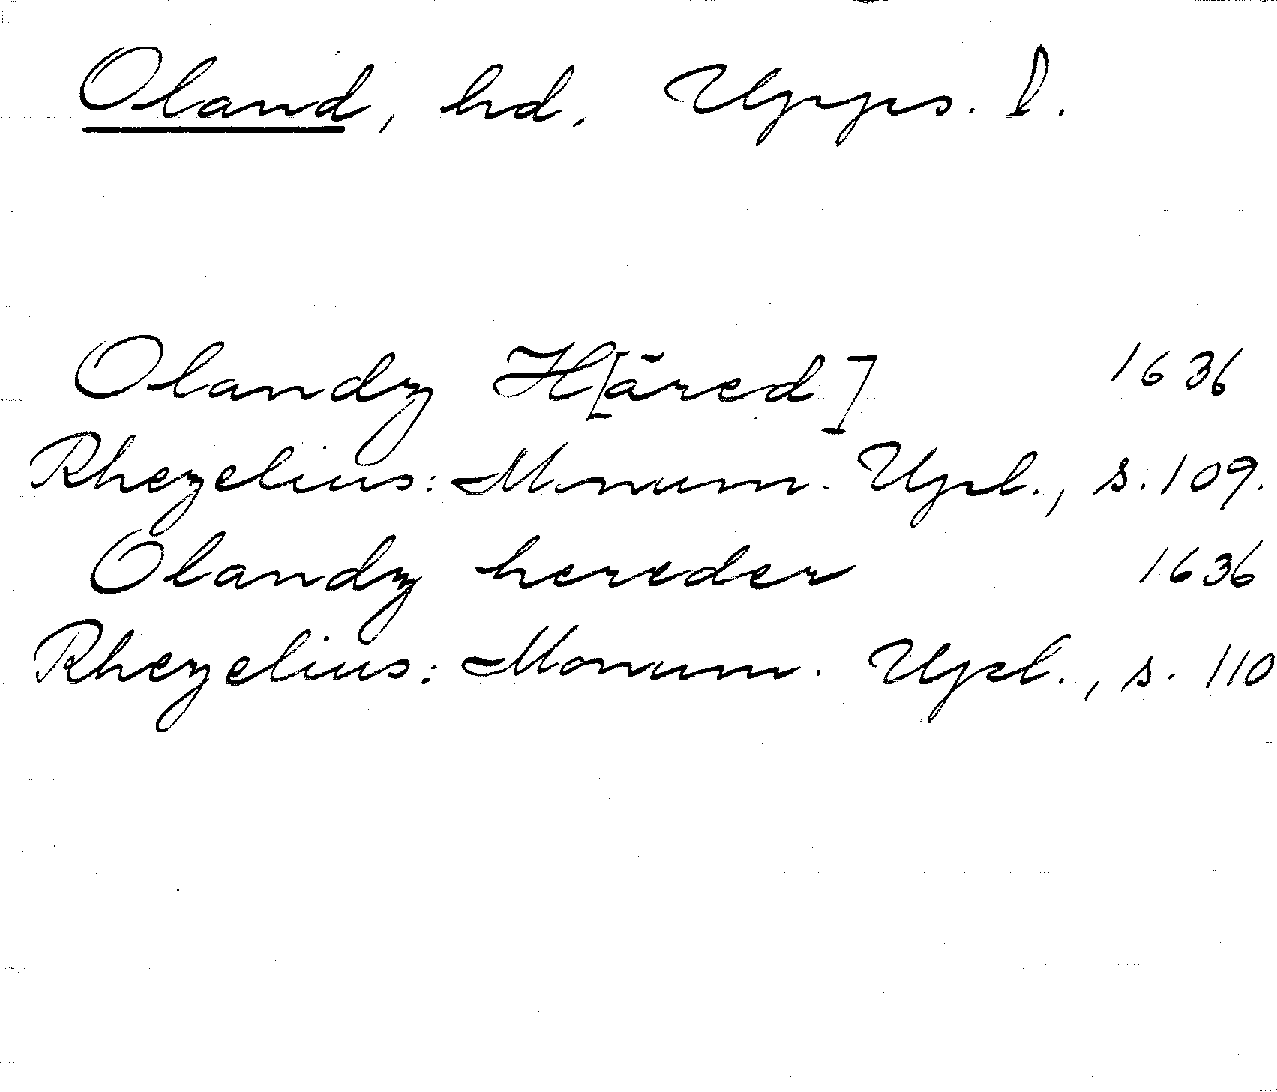 Oland, hd, Upps. l.
Olandz H[äred] 1636
Rhezelius: Monum. Upl., s. 109.
Olandz hereder 1636
Rhezelius: Monum. Upl., s. 110